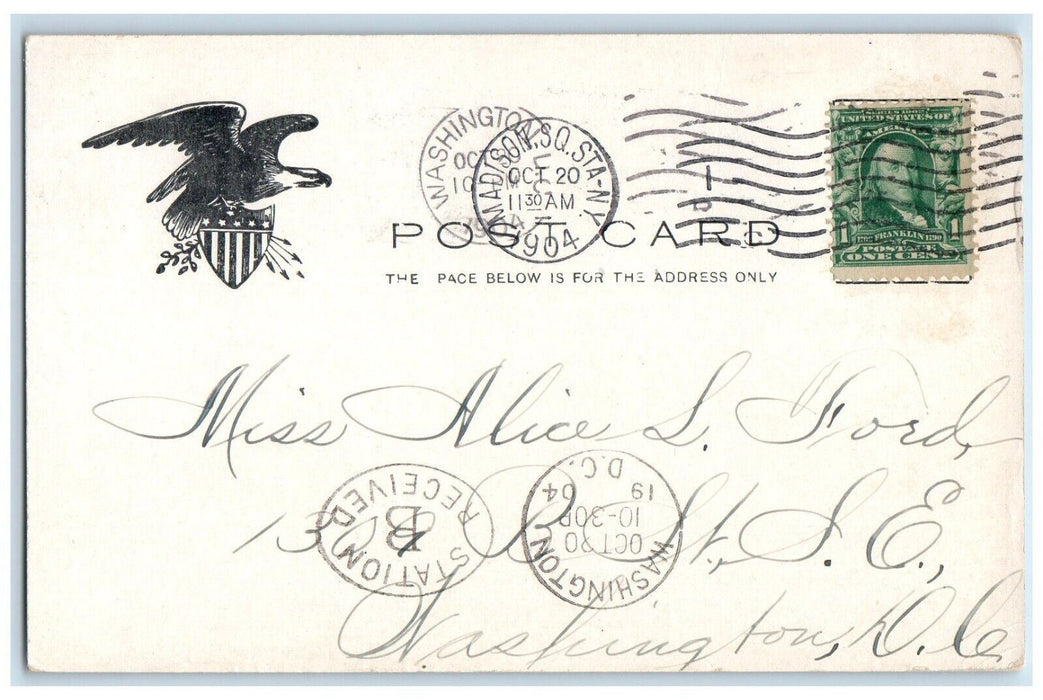 UNITED STATES OF
AMERICA
1762 FRANKLIN 1790
POSTAGE
1 ONE CENT
WASHINGTON
OCT
10
MADISON SQ. STA-N.Y.
OCT 20
11 30 AM
1904
1
POST CARD
THE PACE BELOW IS FOR THE ADDRESS ONLY
Miss Alice L. Ford,
St., S.E.,
Washington, D.C.
STATION B
RECEIVED
WASHINGTON D.C.
OCT 20
10-30P
19 04